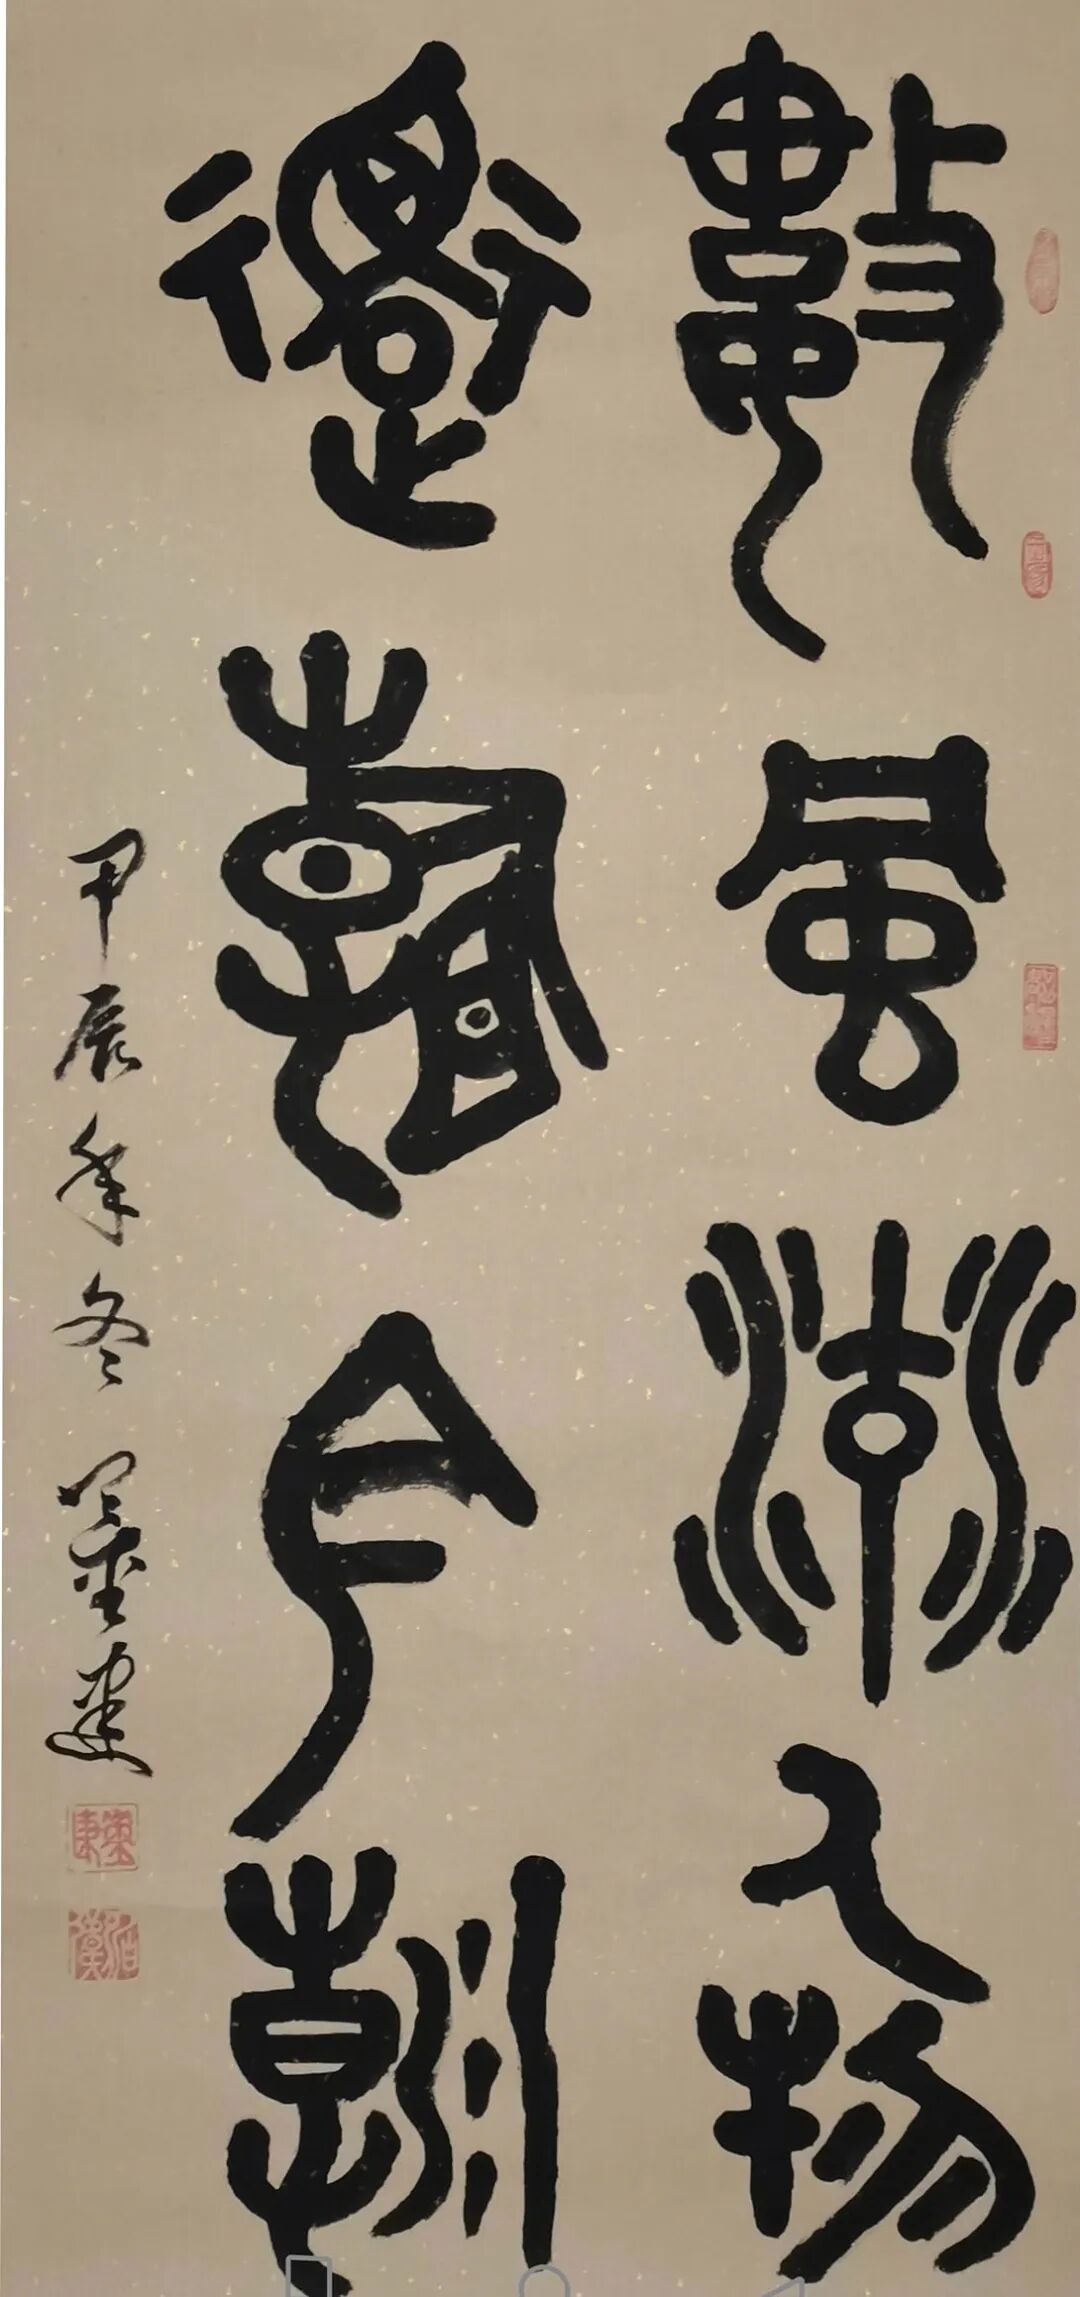 數風流人物
還看今朝
甲辰年冬